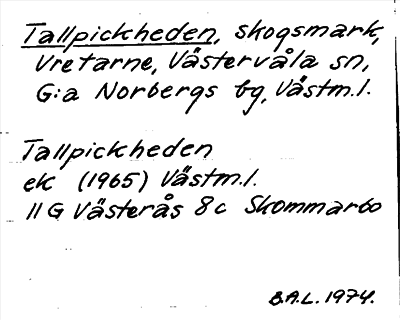 Tallpickheden, skogsmark,
Vretarne, Västervåla sn,
G:a Norbergs bg, Västm.l.
Tallpickheden
ek (1965) Västm.l.
11 G Västerås 8c Skommarbo
B.A.L. 1974.